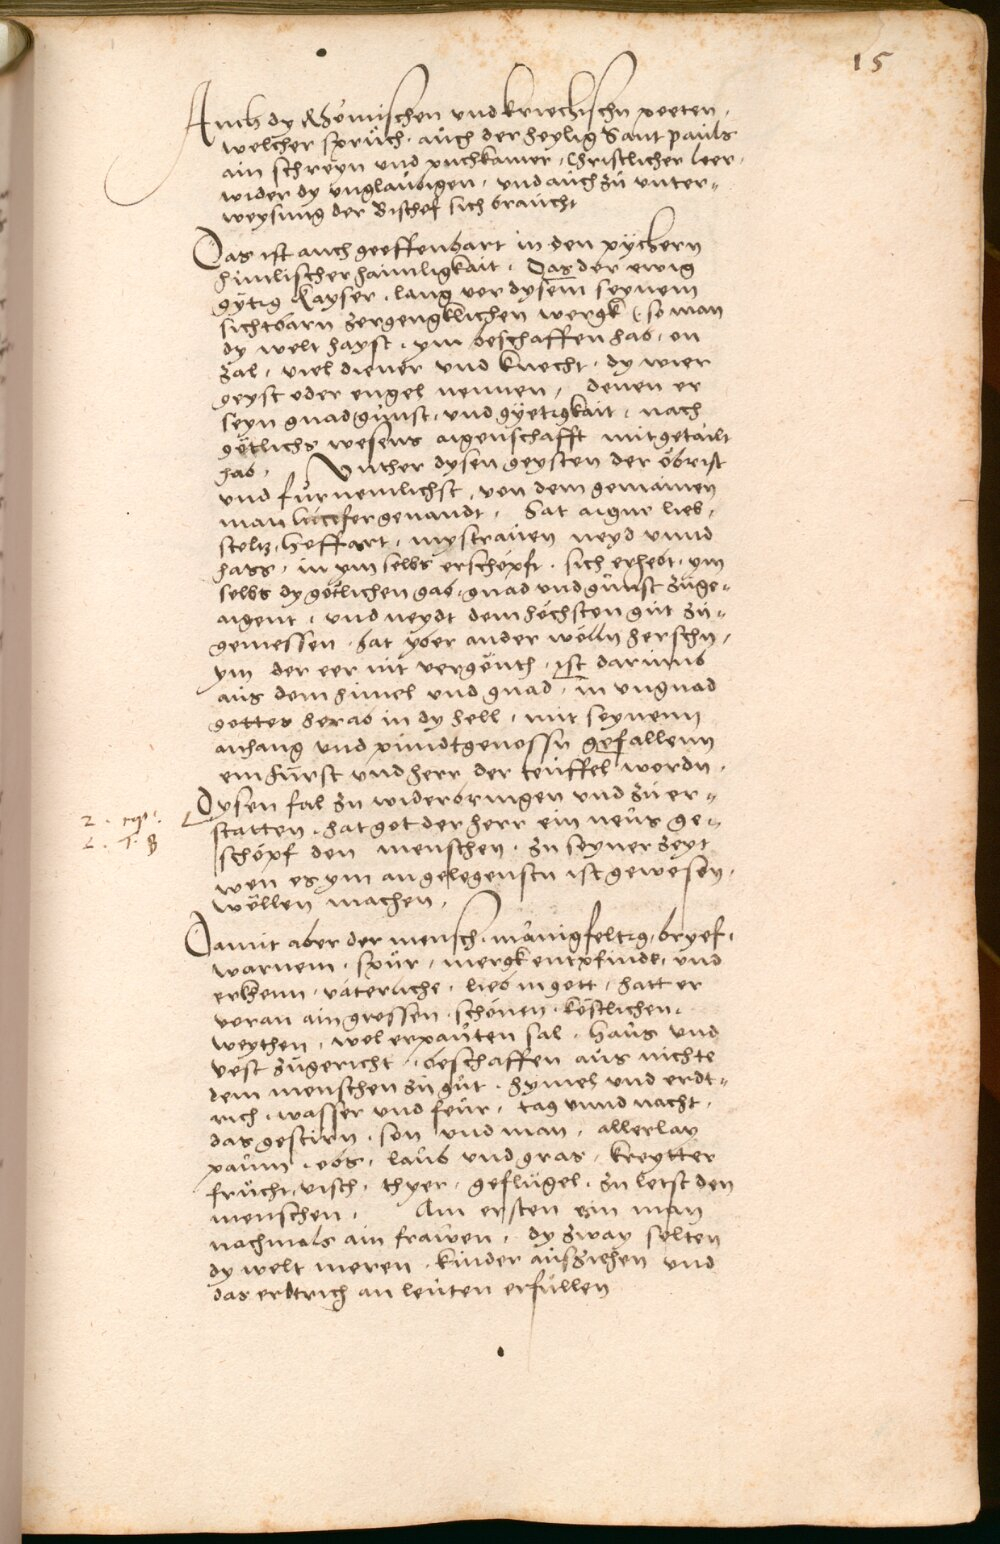 15
Auch dy Römischen und kriechischn poeten,
welcher sprüch, aüch der heylig Sant pauls
ain schreyn und puchkamer, christlicher leer,
wider dy unglaubigen, und aüch zü unter„
weysung der Bischof sich braucht
Das ist auch geoffenbart in den püchern
himlischer haimligkait. Das der ewig
gütig kayser, lang vor dysem seynem
sichtbarn zergengklichen wergk (so man
dy welt hayst, ym beschaffen hab, on
zal, viel diener und knecht, dy wier
geyst oder engel nennen, denen er
seyn gnad günst, und gÿetigkait, nach
götlichs wesens aigenschafft mitgetailt
hab, Unther dysen geysten der öbrist
und fürnemlichst, von dem gemainen
man lucifer genandt, hat aigne lieb,
stoltz, hoffart, mystrauen neyd unnd
hass, in ym selbs erschöpft, sich erhebt, ym
selbs dy götlichen gab, gnad und günst züge„
aigent, und neydt dem höchsten güt zü„
gemessen, hat yber ander wölln herschn,
ym der eer nit vergönth, ist darümb
aüs dem himel und gnad, in ungnad
gottes herab in dy hell, mit seynem
anhang und pundtgenossn gefallenn
ein fürst und herr der teüffel wordn,
Dysen fal zu widerbringen und zü er„
statten, hat got der herr ein neüs ge„
schöpf den menschen, zu seyner zeyt
wen es ym angelegenstn ist gewesen,
wöllen machen,
Damit aber der mensch, mänigfeltig,
warnem, spür, mergk entpfinde, und
erkenn, väterliche, lieb in gott, hatt er
voran ain grossen, schönen, köstlichen,
weythen, wol erpaüten sal, haüs und
vest zügericht, beschaffen aüs nichte
dem menschen zü güt, hymel und erdt„
rich, wasser und feür, tag unnd nacht,
das gestirn, son und man, allerlay
paüm, obs, laüb und gras, kreytter
frücht, visch, thyer, geflügel, zu letst den
menschen, Am ersten ein man
nachmals ain frawen, dy zway solten
dy welt meren, kinder aüfziehen und
das erdtrich an leüten erfüllen